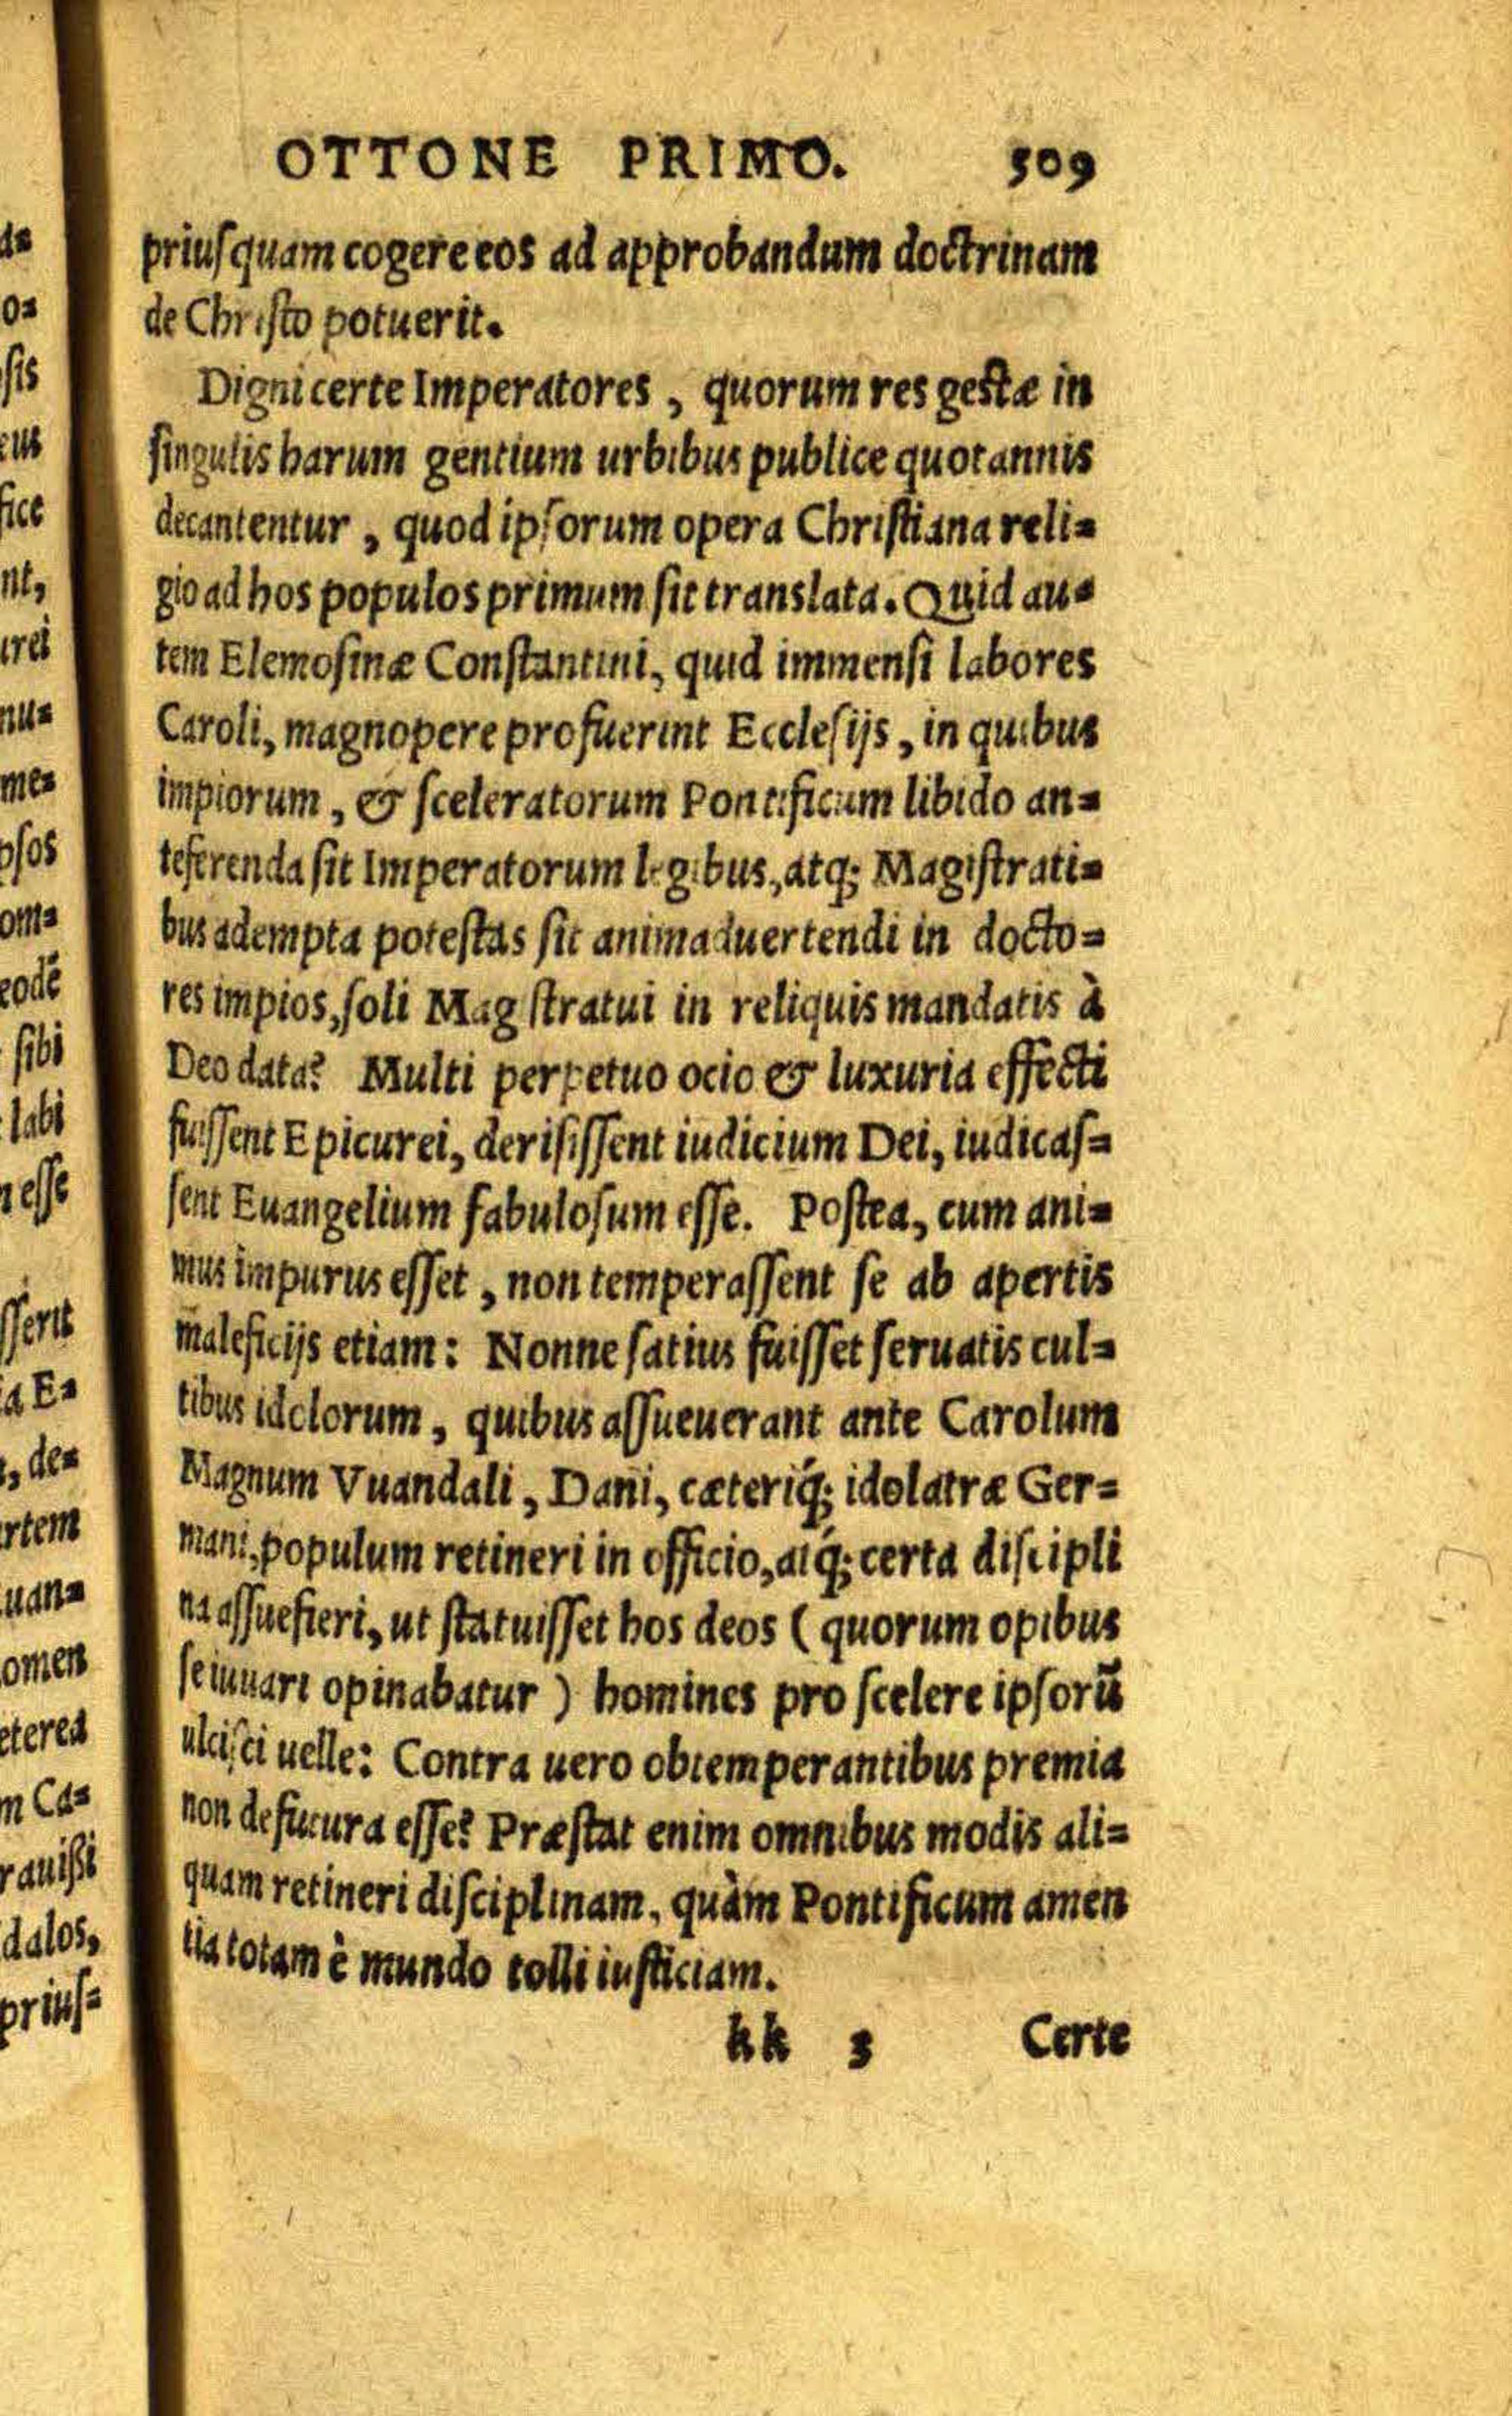 OTTONE PRIMO. 509
priuſquam cogere eos ad approbandum doctrinam
de Chriſto potuerit.
Digni certe Imperatores, quorum res geſtæ in
ſingulis harum gentium urbibus publice quotannis
decantentur, quod ipſorum opera Chriſtiana reli=
gio ad hos populos primum ſit translata. Quid au=
tem Elemoſinæ Conſtantini, quid immenſi labores
Caroli, magnopere profuerint Eccleſijs, in quibus
impiorum, & ſceleratorum Pontificum libido an=
teferenda ſit Imperatorum legibus, atq; Magiſtrati=
bus adempta poteſtas ſit animaduertendi in docto=
res impios, ſoli Magiſtratui in reliquis mandatis à
Deo data? Multi perpetuo ocio & luxuria effecti
fuiſſent Epicurei, deriſiſſent iudicium Dei, iudicaſ=
ſent Euangelium fabuloſum eſſe. Poſtea, cum ani=
mus impurus eſſet, non temperaſſent ſe ab apertis
maleficijs etiam: Nonne ſatius fuiſſet ſeruatis cul=
tibus idolorum, quibus aſſueuerant ante Carolum
Magnum Vuandali, Dani, cæteriq́; idolatræ Ger=
mani, populum retineri in officio, atq́; certa diſcipli
na aſſuefieri, ut ſtatuiſſet hos deos (quorum opibus
ſe iuuari opinabatur) homines pro ſcelere ipſorũ
ulciſci uelle: Contra uero obtemperantibus premia
non defutura eſſe? Præſtat enim omnibus modis ali=
quam retineri diſciplinam, quàm Pontificum amen
tia totam è mundo tolli iuſticiam.
kk 3 Certe